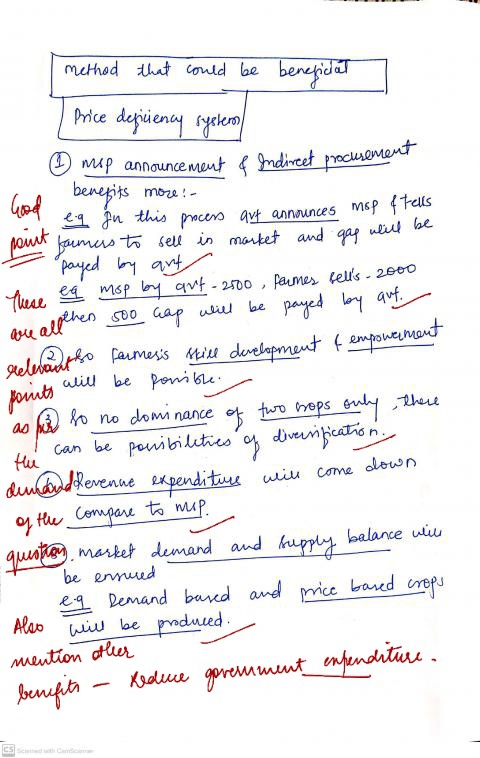 method that could be beneficial
Price deficiency system
① MSP announcement & Indirect procurement
benefits more:-
e.g In this process gvt announces MSP & tells
farmers to sell in market and gap will be
payed by gvt
eg MSP by gvt - 2500, farmer sell's - 2000
then 500 Gap will be payed by gvt.
② So farmers skill development & empowerment
will be possible.
③ So no dominance of two crops only, there
can be possibilities of diversification.
Revenue expenditure will come down
compare to MSP.
market demand and supply balance will
be ensured
e.g Demand based and price based crops
will be produced.
Good
point
These
are all
relevant
points
as per
the
demand
of the
question
Also
mention other
benefits — Reduce government expenditure.
CS Scanned with CamScanner